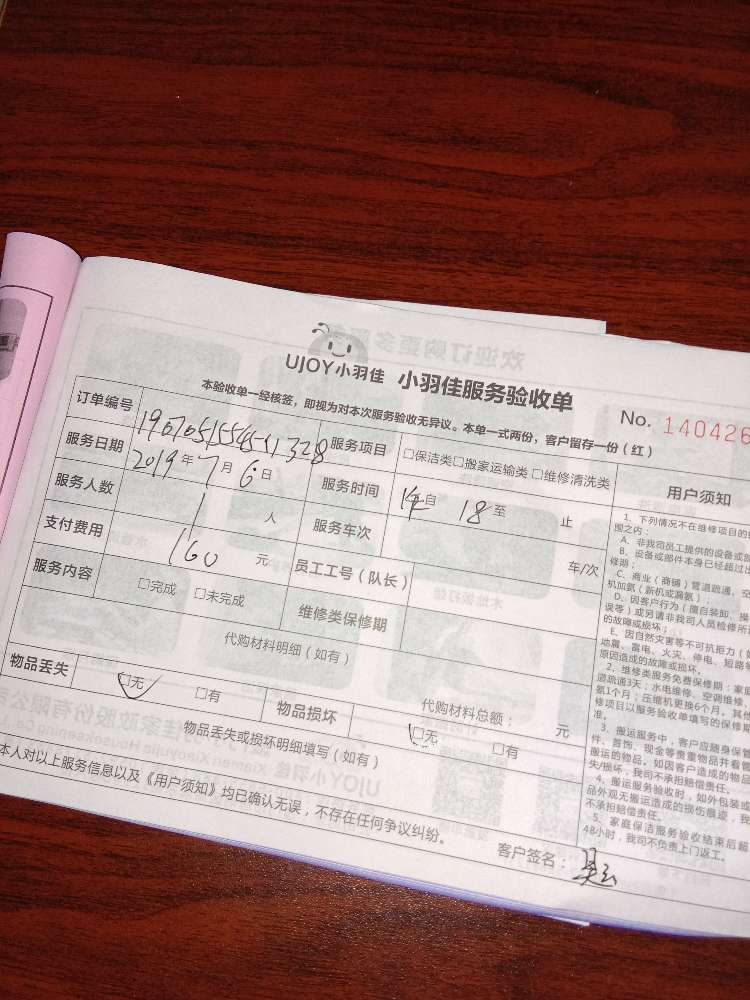 UJOY小羽佳 小羽佳服务验收单
No. 140426
本验收单一经核签，即视为对本次服务验收无异议。本单一式两份，客户留存一份（红）
订单编号 服务项目 □保洁类□搬家运输类□维修清洗类
服务日期 2019年7月6日 服务时间 自 18至 止
服务人数 1人 服务车次 车/次
支付费用 160元 员工工号（队长）
服务内容 □完成 □未完成 维修类保修期
代购材料明细（如有）
代购材料总额： 元
物品丢失 □无 □有 物品损坏 □无 □有
物品丢失或损坏明细填写（如有）
本人对以上服务信息以及《用户须知》均已确认无误，不存在任何争议纠纷。
客户签名：
用户须知
1、下列情况不在维修项目的
围之内：
A、非我司员工提供的设备或
B、设备或部件本身已经超过
修期；
C、商业（商铺）管道疏通、空
机加氨（新机或漏氨）；
D、因客户行为（擅自装卸、操
误等）或另请非我司人员检修所
的故障或损坏；
E、因自然灾害等不可抗拒力（
地震、雷电、火灾、停电、短路等
原因造成的故障或损坏。
2、维修类服务免费保修期：家庭
道疏通3天；水电维修、空调维修、
氨1个月；压缩机更换6个月，其他
修项目以服务验收单填写的保修期
准。
3、搬运服务中，客户应随身保管
件、首饰、现金等贵重物品并看管
搬运的物品。如因客户造成的物品
失/损坏，我司不承担赔偿责任。
4、搬运服务验收时，如外包装或
品外观无搬运造成的损伤痕迹，我
不承担赔偿责任。
5、家庭保洁服务验收结束后超
48小时，我司不负责上门返工。
欢迎订购更多服